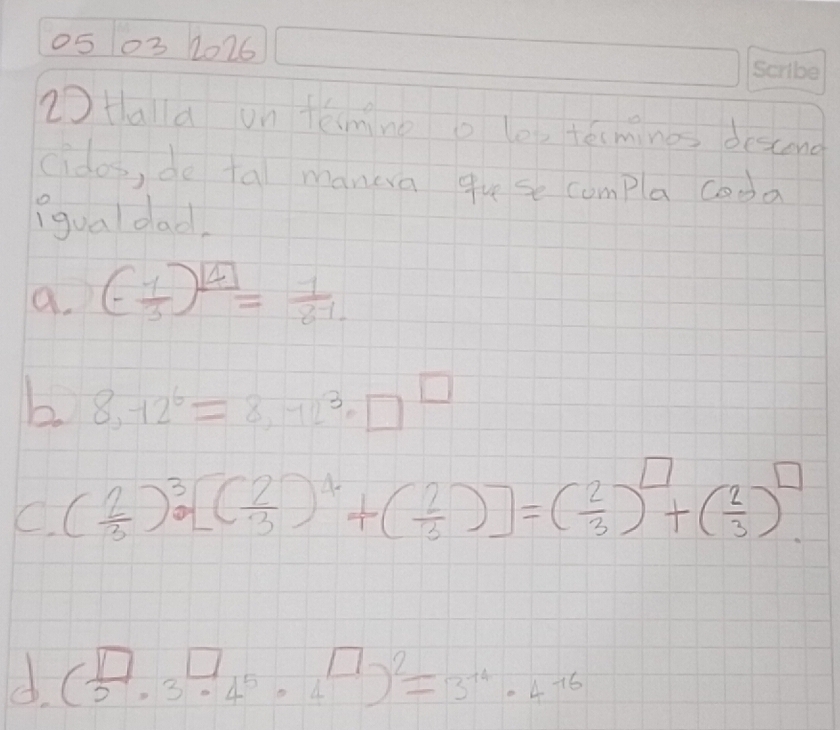 05 03 2026
Scribe
2) Halla un término o los términos descono
cidos, de tal manera que se compla cada
igualdad.
a. (-1/3)^4 = 1/81.
b. 8,12^6 = 8,12^3 · □^□
c. (2/3)^3 · [(2/3)^4 + (2/3)] = (2/3)^□ + (2/3)^□.
d. (3^□ · 3^□ · 4^5 · 4^□)^2 = 3^14 · 4^16